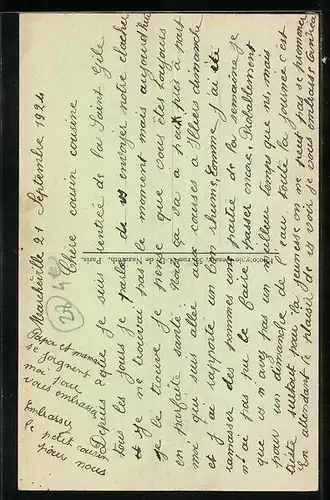 Marchéville 21 Septembre 1924
Chère cousin cousine
Depuis que je suis rentrée de la Saint Gile
tous les jours je parlai de vs envoyer notre
et je ne trouvai pas le moment mais aujourd'hui
je le trouve je pense que vous êtes toujours
en parfaite santé Nous ça va à peu près à part
moi qui suis allée aux courses à Illiers dimanche
et j'ai rapporté un bon rhume, comme j'ai été
ramasser des pommes une partie de la semaine je
n'ai pas pu le faire passer encore. Probablement
que vs n'avez pas un meilleu temps que ns, mais
pour un dimanche de l'eau toute la journée c'est
triste surtout pour la jeunesse on ne peut pas se promener
En attendant le plaisir de vs voir je vous embrasse
Papa et maman
se joignent à
moi pour
vous embrasser
Embrasser
le petit cousin
pour nous
22
4e
Phototypie de Nazareth, Paris